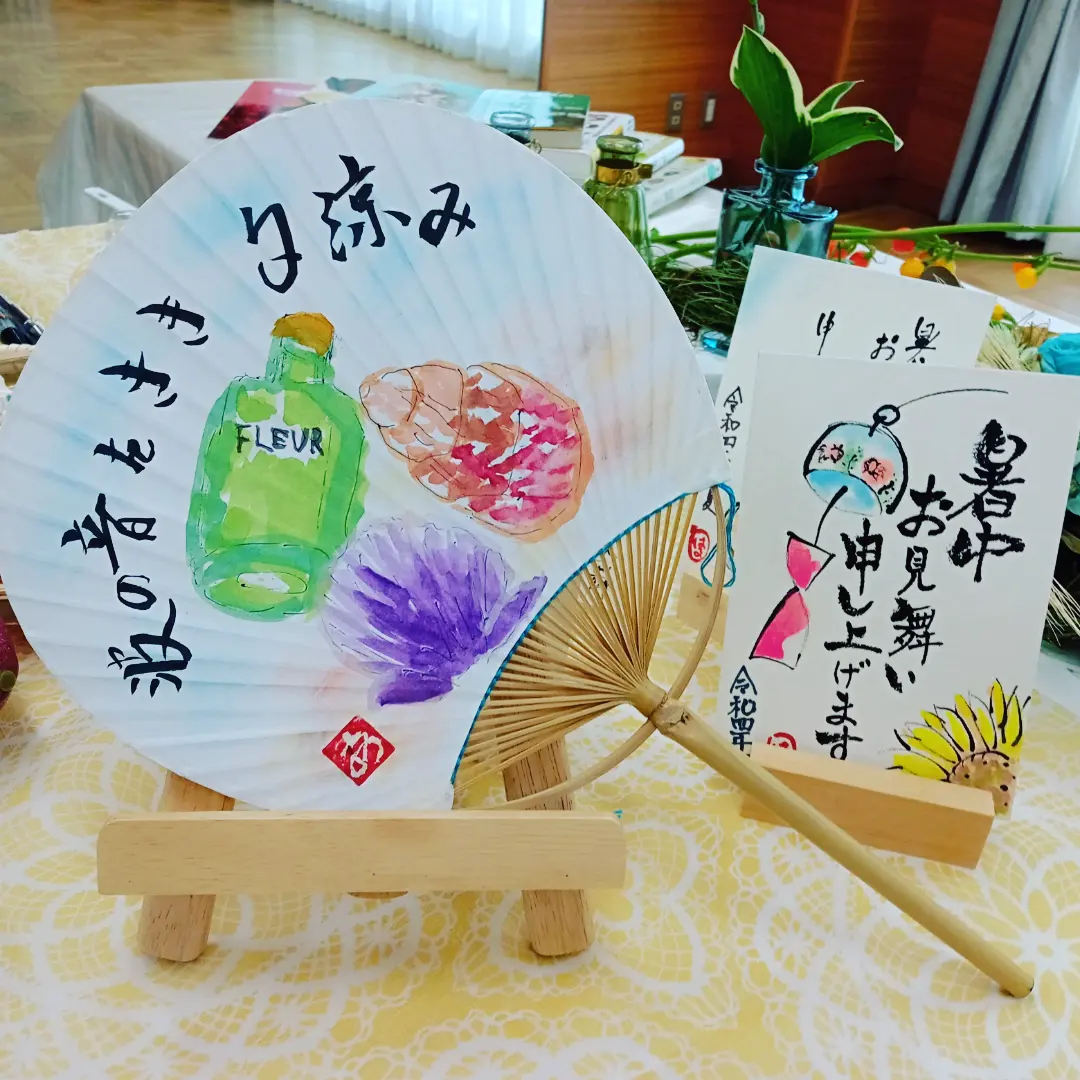 波の音をきき
夕涼み
FLEUR
暑中
お見舞い
申し上げます
令和四年
お
申
令和四